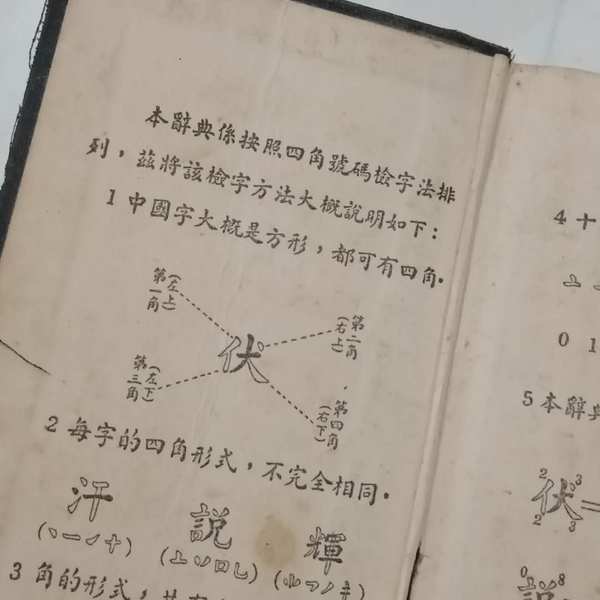 本辭典係按照四角號碼檢字法排
列，茲將該檢字方法大概說明如下：
1 中國字大概是方形，都可有四角．
第一角（左上）
第二角（右上）
伏
第三角（左下）
第四角（右下）
2 每字的四角形式，不完全相同．
汗 説 輝
3 角的形式，共
4 十
0 1
5 本辭典
2 伏 3 =
2 3
0 説 8